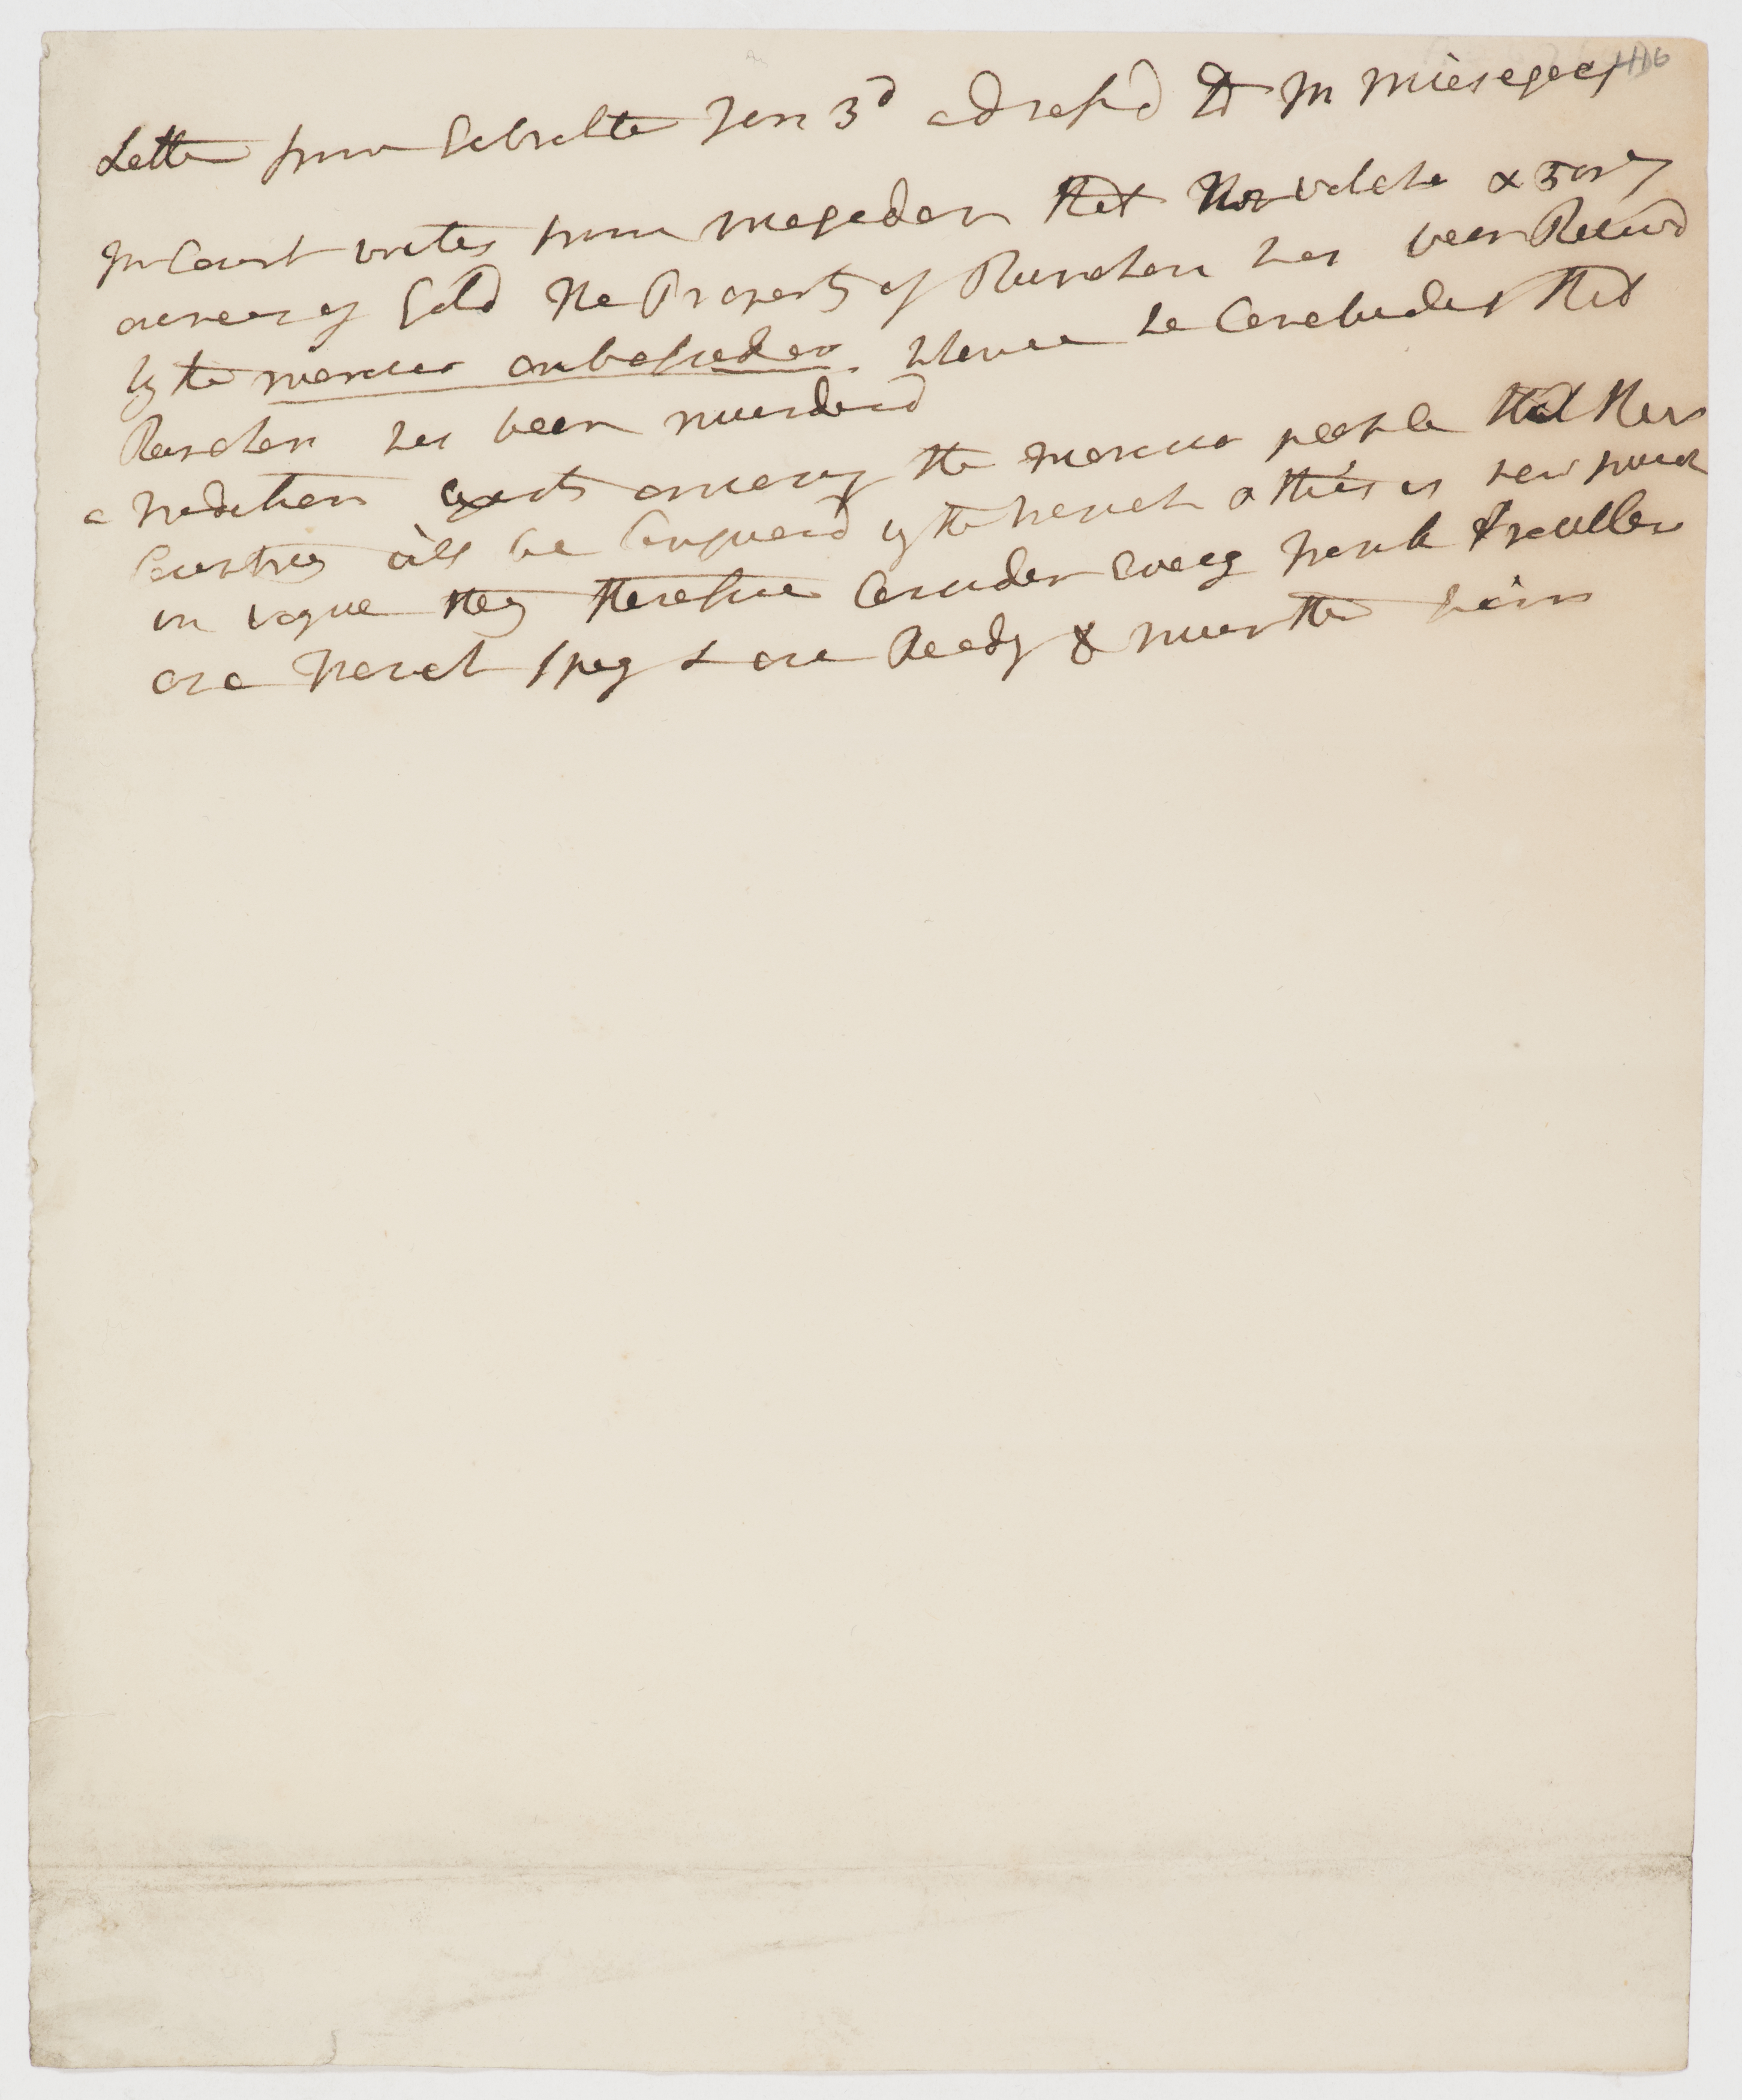 Letter from Gibralter Jan 3d addressd to Mr Miesegaes
Mr Court writes from Mogador that the watch & 50
ounces of Gold the Property of Runchen has been Receivd
by the morocco ambassador. whence he Concludes that
Runchen has been murderd
a tradition exists among the morocco people that their
Countrey will be Conquerd by the french & this is now much
in vogue they therefore Consider every frank traveller
as a french spy & are Ready to murther him